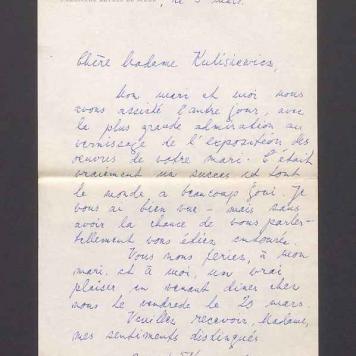 le 3 mars.
Chère Madame Kulisiewicz,
Mon mari et moi nous
avons assisté l'autre jour, avec
la plus grande admiration au
vernissage de l'exposition des
œuvres de votre mari. C'était
vraiment un succès et tout
le monde a beaucoup joui. Je
vous ai bien vue - mais sans
avoir la chance de vous parler -
tellement vous étiez entourée.
Vous nous feriez, à mon
mari et à moi, un vrai
plaisir en venant diner chez
nous le vendredi le 20 mars.
Veuillez recevoir, Madame,
mes sentiments distingués